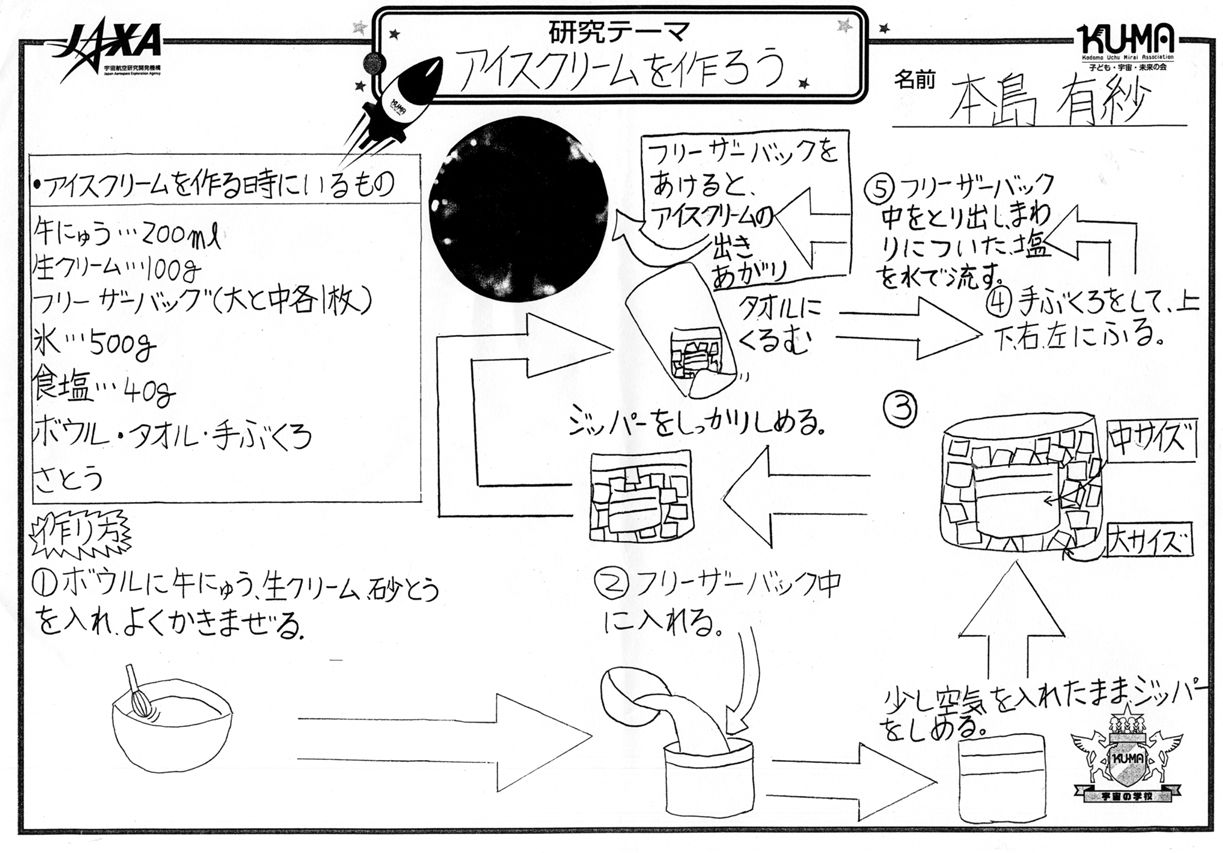 JAXA
宇宙航空研究開発機構
Japan Aerospace Exploration Agency
研究テーマ
アイスクリームを作ろう
KUMA
KU-MA
Kodomo Uchu Mirai Association
子ども・宇宙・未来の会
名前 本島 有紗
・アイスクリームを作る時にいるもの
牛にゅう…200ml
生クリーム…100g
フリーザーバッグ(大と中各1枚)
氷…500g
食塩…40g
ボウル・タオル・手ぶくろ
さとう
作り方
①ボウルに牛にゅう、生クリーム、砂とう
を入れ、よくかきまぜる。
②フリーザーバック中
に入れる。
少し空気を入れたまま、ジッパー
をしめる。
③
中サイズ
大サイズ
ジッパーをしっかりしめる。
タオルに
くるむ
④手ぶくろをして、上
下、右、左にふる。
⑤フリーザーバック
中をとり出し、まわ
りについた、塩
を水で流す。
フリーザーバックを
あけると、
アイスクリームの
出き
あがり
KU-MA
宇宙の学校